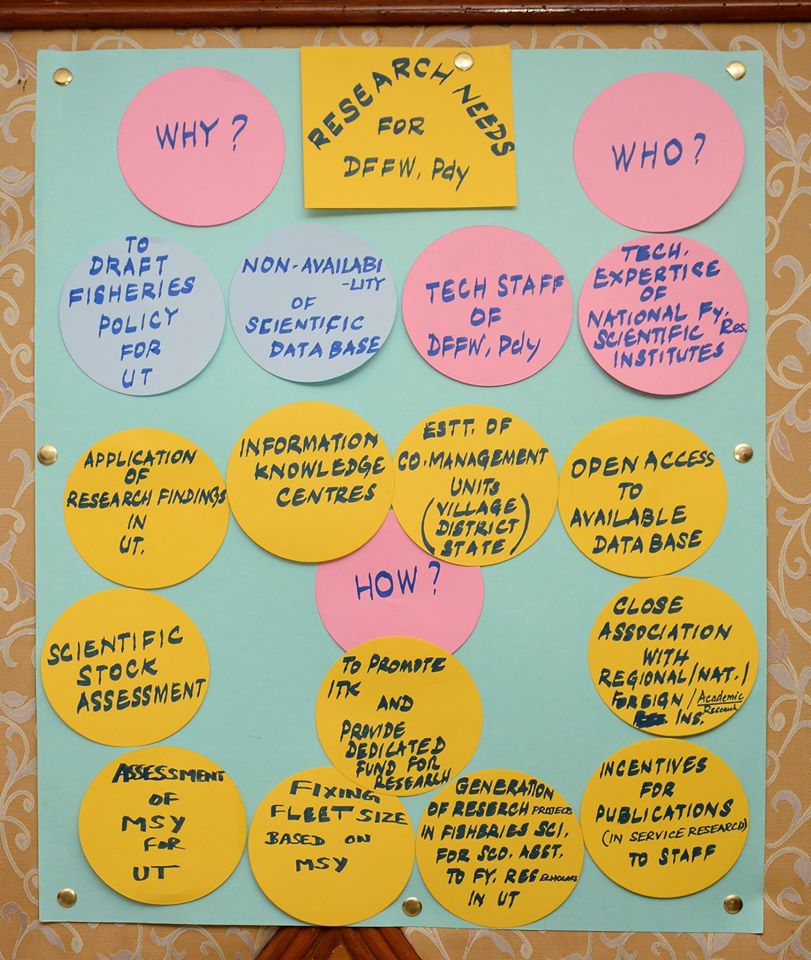 RESEARCH NEEDS
FOR
DFFW, Pdy
WHY?
WHO?
TO
DRAFT
FISHERIES
POLICY
FOR
UT
NON-AVAILABI
-LITY
OF
SCIENTIFIC
DATA BASE
TECH STAFF
OF
DFFW, Pdy
TECH.
EXPERTISE
OF
NATIONAL Fy.
SCIENTIFIC Res.
INSTITUTES
APPLICATION
OF
RESEARCH FINDINGS
IN
UT.
INFORMATION
KNOWLEDGE
CENTRES
ESTT. OF
CO.MANAGEMENT
UNITS
(VILLAGE
DISTRICT
STATE)
OPEN ACCESS
TO
AVAILABLE
DATA BASE
HOW?
SCIENTIFIC
STOCK
ASSESSMENT
TO PROMOTE
ITK
AND
PROVIDE
DEDICATED
FUND FOR
RESEARCH
CLOSE
ASSOCIATION
WITH
REGIONAL/NAT./
FOREIGN/Academic
Research
INS.
ASSESSMENT
OF
MSY
FOR
UT
FIXING
FLEET SIZE
BASED ON
MSY
GENERATION
OF RESERCH PROJECTS
IN FISHERIES SCI.
FOR SCO. ASST.
TO FY. RES. SCHOLARS
IN UT
INCENTIVES
FOR
PUBLICATIONS
(IN SERVICE RESEARCH)
TO STAFF